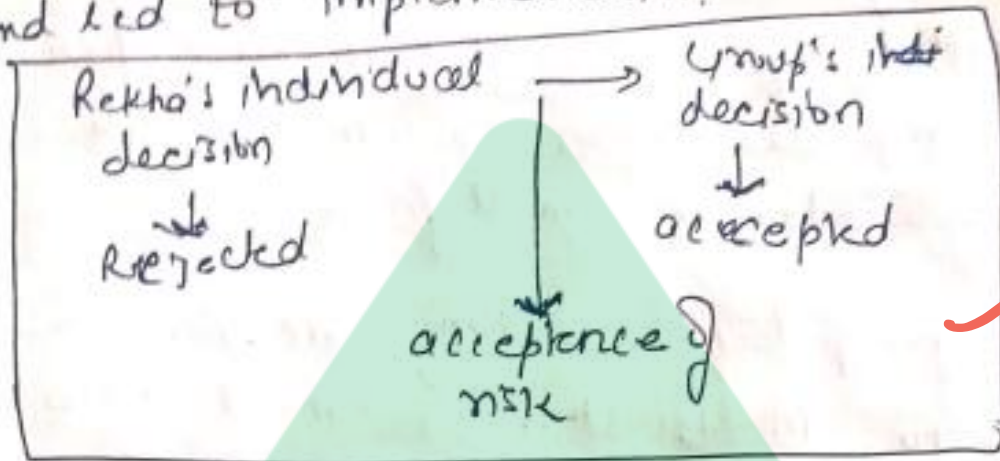 nd led to
Rekha's individual → Group's
decision decision
↓ ↓
Rejected accepted
↓
acceptence of
risk